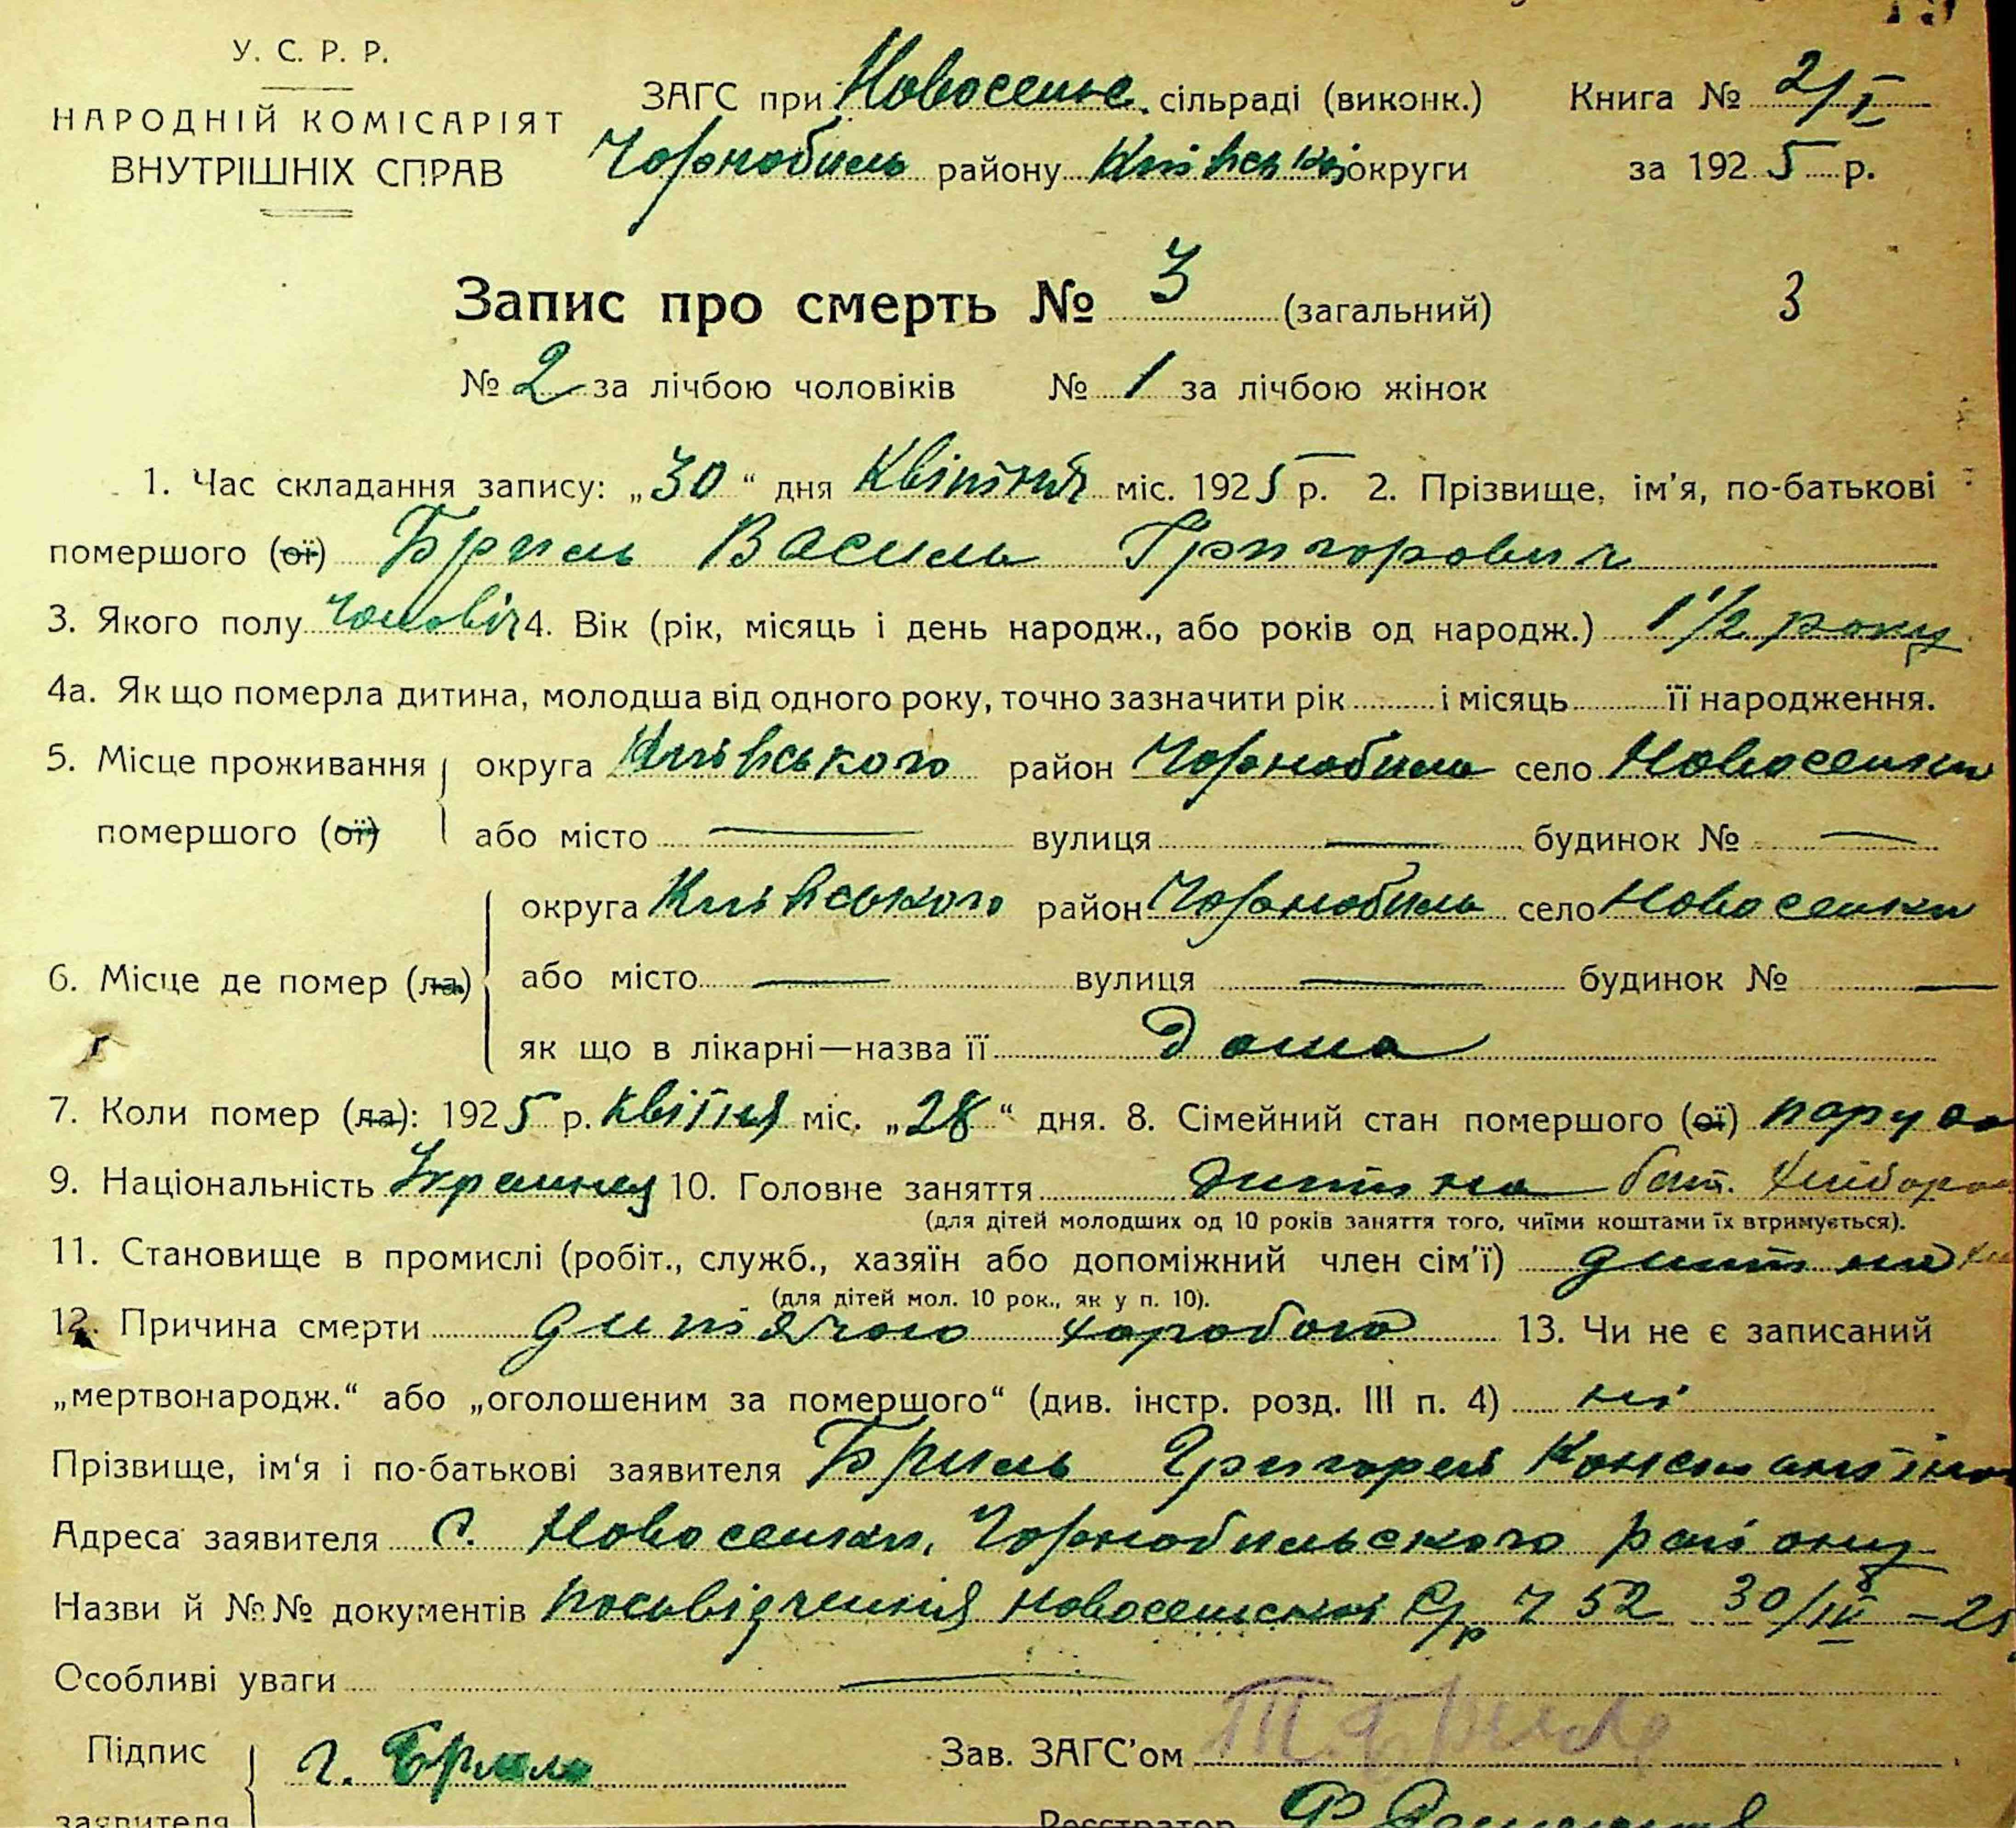 У. С. Р. Р.
НАРОДНІЙ КОМІСАРІЯТ
ВНУТРІШНІХ СПРАВ
ЗАГС при Новосельс. сільраді (виконк.)
Чорнобиль району Київськ округи
Книга № 2/I
за 1925 р.
Запис про смерть № 3 (загальний)
3
№ 2 за лічбою чоловіків № 1 за лічбою жінок
1. Час складання запису: „30“ дня Квітня міс. 1925 р. 2. Прізвище, ім'я, по-батькові
помершого (ої) Бриль Василь Григорович
3. Якого полу чоловіч 4. Вік (рік, місяць і день народж., або років од народж.) 1 1/2 року
4а. Як що померла дитина, молодша від одного року, точно зазначити рік і місяць її народження.
5. Місце проживання округа Київського район Чорнобиль село Новоселки
помершого (ої) або місто — вулиця — будинок № —
округа Київського район Чорнобиль село Новоселки
6. Місце де помер (ла) або місто — вулиця — будинок № —
як що в лікарні—назва її Дома
7. Коли помер (ла): 1925 р. Квітня міс. „28“ дня. 8. Сімейний стан помершого (ої)
9. Національність Українец 10. Головне заняття Дитина бат. хлібороб
(для дітей молодших од 10 років заняття того, чиїми коштами їх втримується).
11. Становище в промислі (робіт., служб., хазяїн або допоміжний член сім'ї) дитина
(для дітей мол. 10 рок., як у п. 10).
12. Причина смерти дитячою хоробою 13. Чи не є записаний
„мертвонародж.“ або „оголошеним за помершого“ (див. інстр. розд. III п. 4) ні
Прізвище, ім'я і по-батькові заявителя Бриль Григорей Константінов
Адреса заявителя С. Новоселки, Чорнобильского району
Назви й №№ документів посьвідчення Новосельскої С/р Ч 52 30/IV – 25
Особливі уваги —
Підпис Г. Бриль Зав. ЗАГС'ом
заявителя Реєстратор